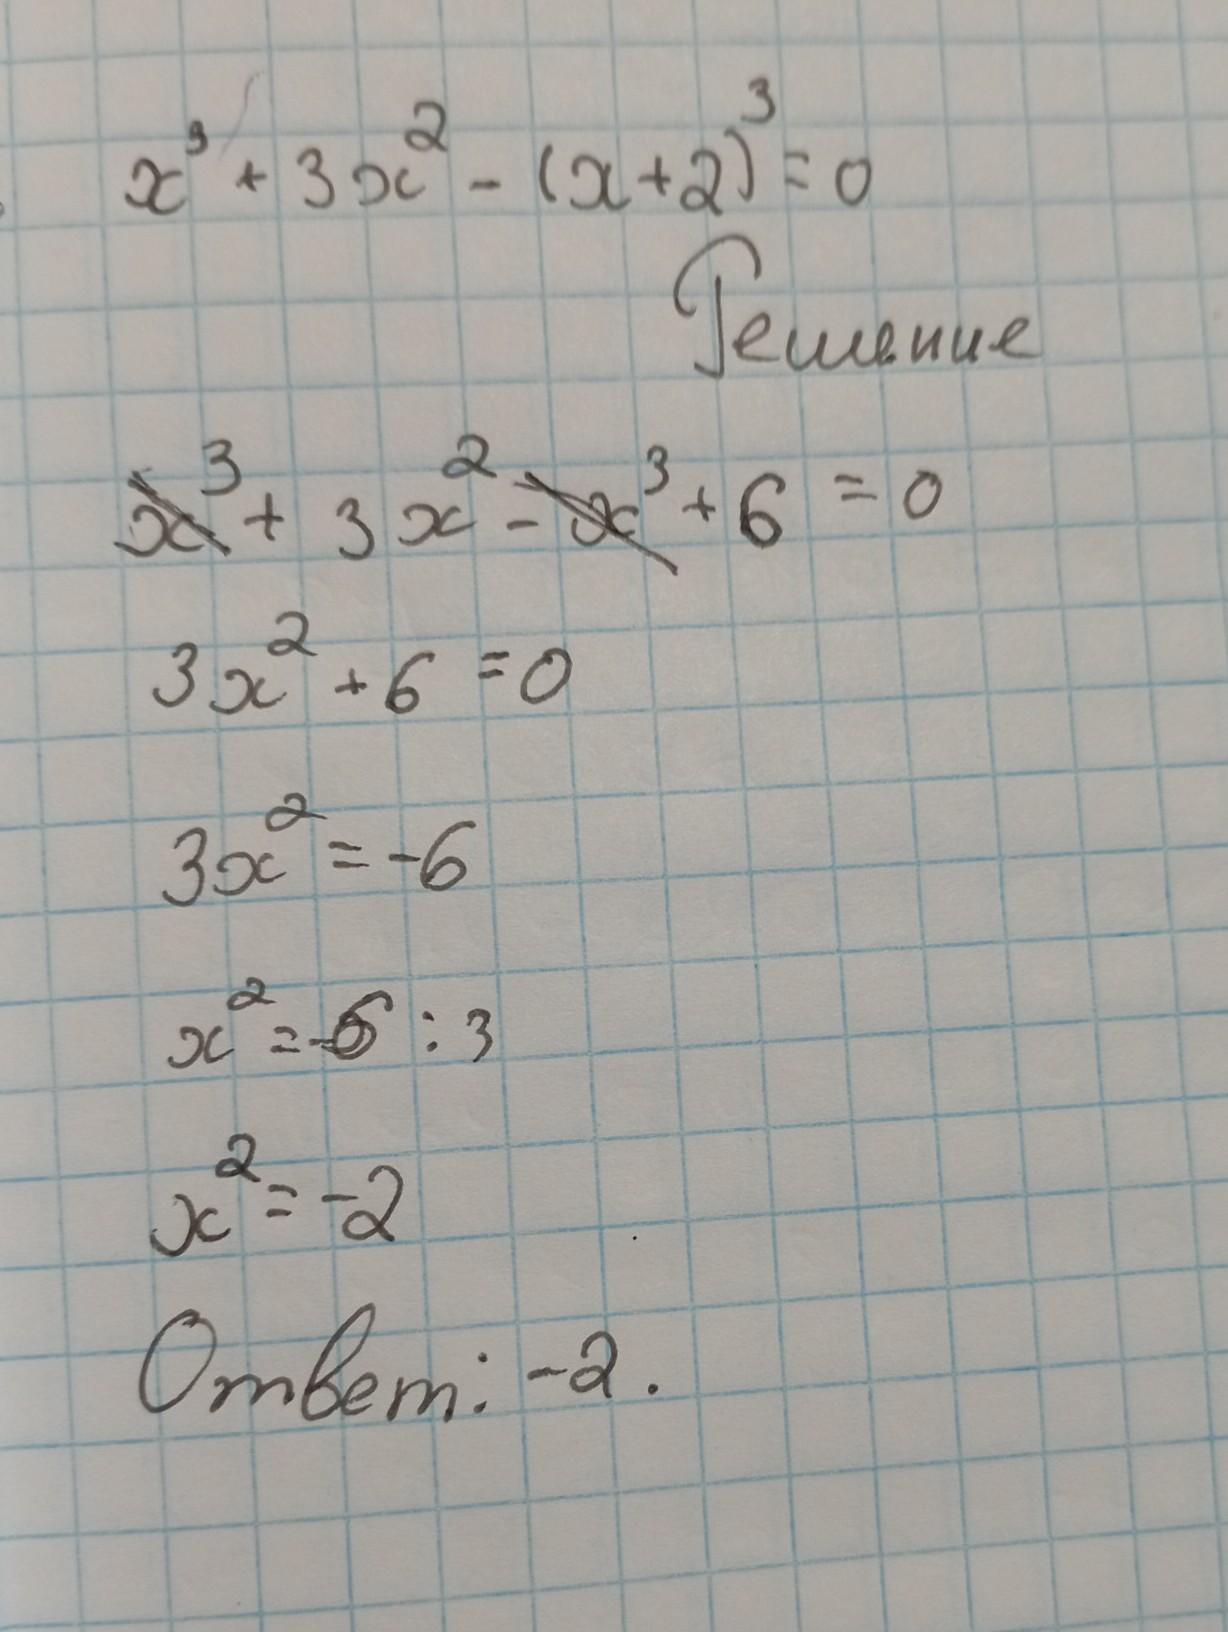 x³ + 3x² - (x+2)³ = 0
Решение
x³ + 3x² - x³ + 6 = 0
3x² + 6 = 0
3x² = -6
x² = -6 : 3
x² = -2
Ответ: -2.